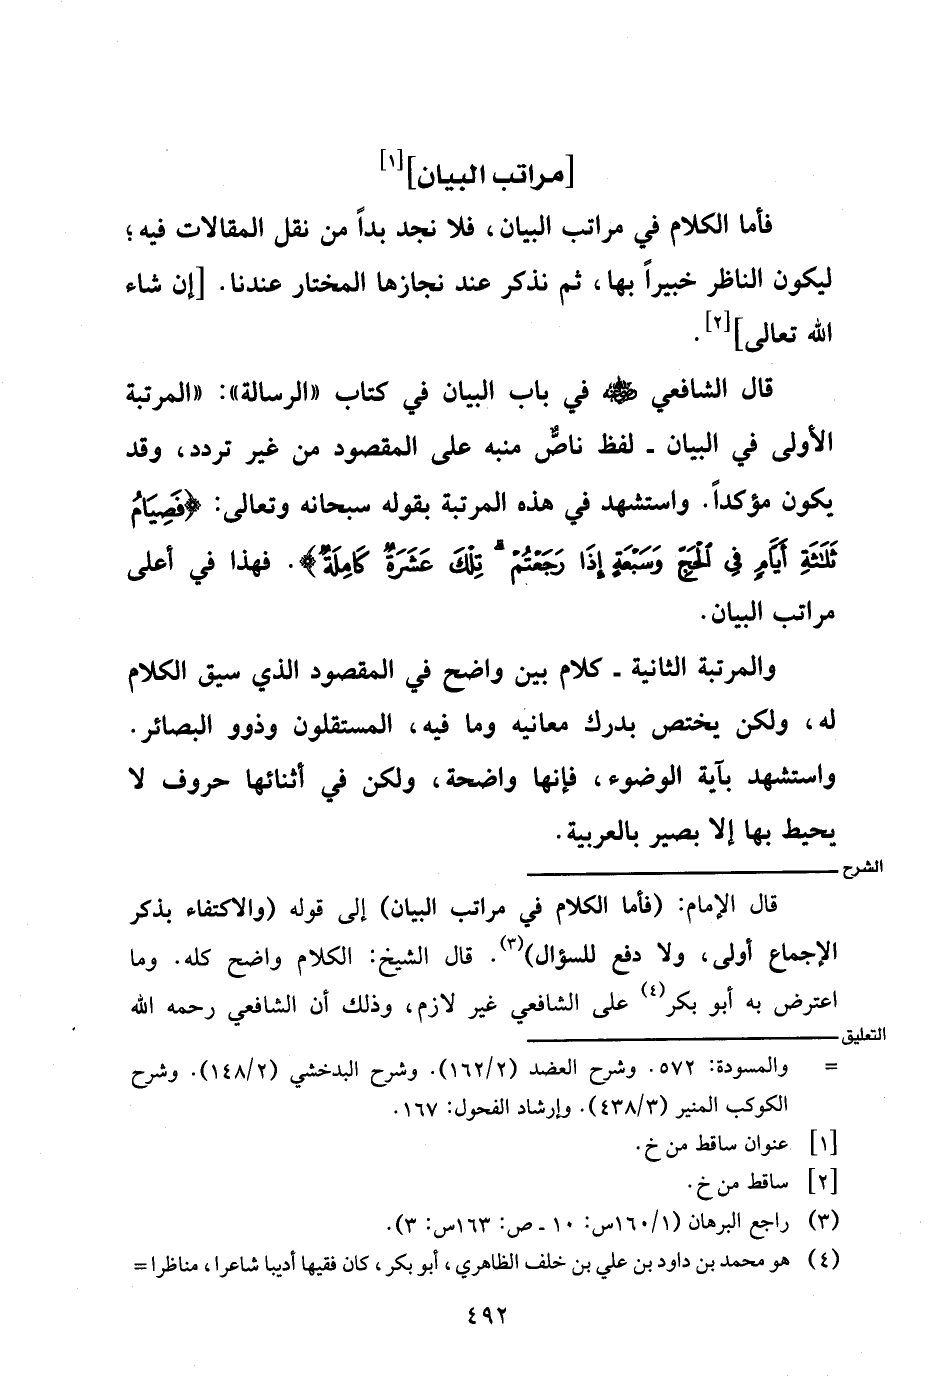 [مراتب البيان][١]
فأما الكلام في مراتب البيان، فلا نجد بداً من نقل المقالات فيه؛
ليكون الناظر خبيراً بها، ثم نذكر عند نجازها المختار عندنا. [إن شاء
الله تعالى][٢].
قال الشافعي ﵁ في باب البيان في كتاب «الرسالة»: «المرتبة
الأولى في البيان ـ لفظ ناصٌّ منبه على المقصود من غير تردد، وقد
يكون مؤكداً. واستشهد في هذه المرتبة بقوله سبحانه وتعالى: ﴿فَصِيَامُ
ثَلَٰثَةِ أَيَّامٍ فِي ٱلْحَجِّ وَسَبْعَةٍ إِذَا رَجَعْتُمْ ۗ تِلْكَ عَشَرَةٌ كَامِلَةٌ﴾. فهذا في أعلى
مراتب البيان.
والمرتبة الثانية ـ كلام بين واضح في المقصود الذي سيق الكلام
له، ولكن يختص بدرك معانيه وما فيه، المستقلون وذوو البصائر.
واستشهد بآية الوضوء، فإنها واضحة، ولكن في أثنائها حروف لا
يحيط بها إلا بصير بالعربية.
الشرح
قال الإمام: (فأما الكلام في مراتب البيان) إلى قوله (والاكتفاء بذكر
الإجماع أولى، ولا دفع للسؤال)(٣). قال الشيخ: الكلام واضح كله. وما
اعترض به أبو بكر(٤) على الشافعي غير لازم، وذلك أن الشافعي رحمه الله
التعليق
= والمسودة: ٥٧٢. وشرح العضد (١٦٢/٢). وشرح البدخشي (١٤٨/٢). وشرح
الكوكب المنير (٤٣٨/٣). وإرشاد الفحول: ١٦٧.
[١] عنوان ساقط من خ.
[٢] ساقط من خ.
(٣) راجع البرهان (١٦٠/١س: ١٠ ـ ص: ١٦٣س: ٣).
(٤) هو محمد بن داود بن علي بن خلف الظاهري، أبو بكر، كان فقيها أديبا شاعرا، مناظرا =
٤٩٢